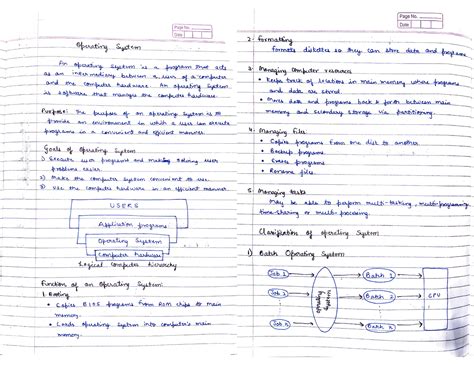 Page No.
Date
Operating System
An operating System is a program that acts
as an intermediary between a user of a computer
and the computer hardware. An operating System
is software that manage the computer hardware.
Purpose: The purpose of an operating System is to
provide an environment in which a user can execute
programs in a convenient and efficient manner.
Goals of Operating System
1) Execute user programs and making solving user
problems easier.
2) Make the computer system convenient to use.
3) Use the computer hardware in an efficient manner.
USERS
Application programs
Operating System
Computer hardware
Logical computer hierarchy
Function of an Operating System:
1. Booting
• Copies BIOS programs from ROM chips to main
memory.
• Loads operating System into computer's main
memory.
Page No.
Date
2. Formatting
Formats diskettes so they can store data and programs
3. Managing Computer resources
• Keeps track of locations in main memory where programs
and data are stored.
• Moves data and programs back & forth between main
memory and secondary storage via partitioning.
4. Managing Files
• Copies programs from one disk to another
• Backup programs
• Erase programs
• Rename files.
5. Managing tasks
May be able to perform multi-tasking, multi-programming,
time-sharing or multi-processing.
Classification of operating System
1) Batch Operating System
Job 1
Batch 1
Job 2
operating
system
Batch 2
CPU
Job n
Batch n